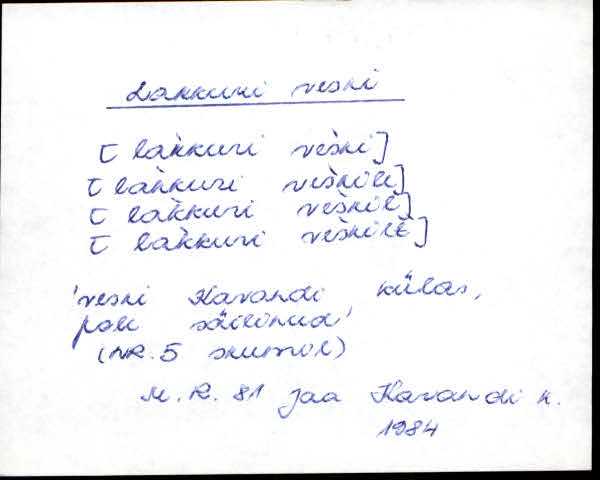 Lakkuri veski
[ lak̀kuri vès̀ki]
[ lak̀kuri vès̀kil]
[ lak̀kuri vès̀kil]
[ lak̀kuri vès̀kilĕ]
'veski Kavandi külas,
pole säilinud'
(NR. 5 skeemil)
M. R. 81 Jaa Kavandi k.
1984